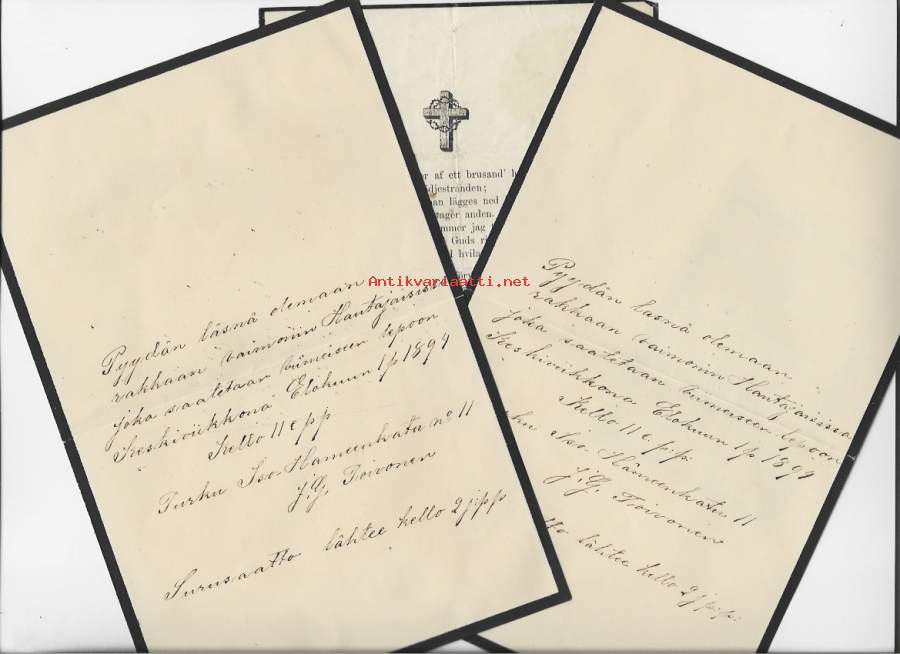 Pyydän läsnä olemaan
rakkaan vaimoin Hautajaisissa
joka saatetaan viimeiseen lepoon
Keskiviikkona Elokuun 1 p 1894
Kello 11 e p p
Turku Iso Hämeenkatu no 11
J. G. Toivonen
Surusaatto lähtee kello 2 j p p
af ett brusand'
djestranden;
lägges ned
tager anden.
mmer jag
Guds
hvila
Antikvariaatti.net
Pyydän läsnä olemaan
rakkaan vaimoin Hautajaisissa
joka saatetaan viimeiseen lepoon
Keskiviikkona Elokuun 1 p 1894
Kello 11 e. p. p.
Iso Hämeenkatu 11
J. G. Toivonen
lähtee kello 2 j. p. p.